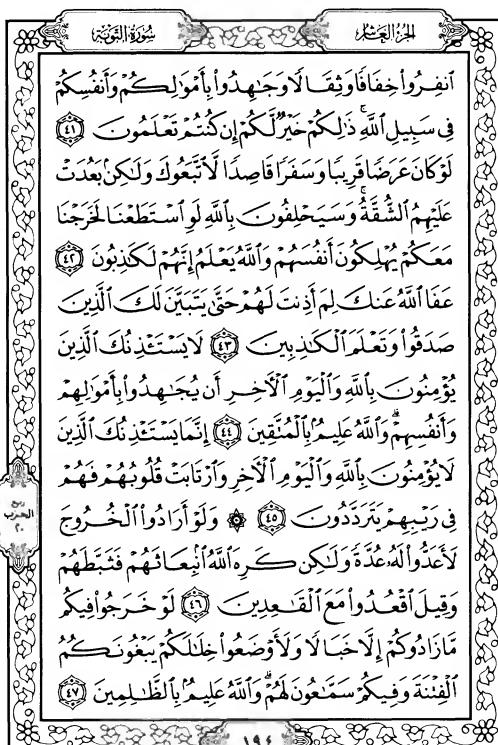 الجزء العاشر
سورة التوبة
ٱنفِرُوا۟ خِفَافًا وَثِقَالًا وَجَٰهِدُوا۟ بِأَمْوَٰلِكُمْ وَأَنفُسِكُمْ
فِى سَبِيلِ ٱللَّهِ ۚ ذَٰلِكُمْ خَيْرٌ لَّكُمْ إِن كُنتُمْ تَعْلَمُونَ ٤١
لَوْ كَانَ عَرَضًا قَرِيبًا وَسَفَرًا قَاصِدًا لَّٱتَّبَعُوكَ وَلَٰكِنۢ بَعُدَتْ
عَلَيْهِمُ ٱلشُّقَّةُ ۚ وَسَيَحْلِفُونَ بِٱللَّهِ لَوِ ٱسْتَطَعْنَا لَخَرَجْنَا
مَعَكُمْ يُهْلِكُونَ أَنفُسَهُمْ وَٱللَّهُ يَعْلَمُ إِنَّهُمْ لَكَٰذِبُونَ ٤٢
عَفَا ٱللَّهُ عَنكَ لِمَ أَذِنتَ لَهُمْ حَتَّىٰ يَتَبَيَّنَ لَكَ ٱلَّذِينَ
صَدَقُوا۟ وَتَعْلَمَ ٱلْكَٰذِبِينَ ٤٣ لَا يَسْتَـْٔذِنُكَ ٱلَّذِينَ
يُؤْمِنُونَ بِٱللَّهِ وَٱلْيَوْمِ ٱلْءَاخِرِ أَن يُجَٰهِدُوا۟ بِأَمْوَٰلِهِمْ
وَأَنفُسِهِمْ ۗ وَٱللَّهُ عَلِيمٌۢ بِٱلْمُتَّقِينَ ٤٤ إِنَّمَا يَسْتَـْٔذِنُكَ ٱلَّذِينَ
لَا يُؤْمِنُونَ بِٱللَّهِ وَٱلْيَوْمِ ٱلْءَاخِرِ وَٱرْتَابَتْ قُلُوبُهُمْ فَهُمْ
فِى رَيْبِهِمْ يَتَرَدَّدُونَ ٤٥ ۞ وَلَوْ أَرَادُوا۟ ٱلْخُرُوجَ
لَأَعَدُّوا۟ لَهُۥ عُدَّةً وَلَٰكِن كَرِهَ ٱللَّهُ ٱنۢبِعَاثَهُمْ فَثَبَّطَهُمْ
وَقِيلَ ٱقْعُدُوا۟ مَعَ ٱلْقَٰعِدِينَ ٤٦ لَوْ خَرَجُوا۟ فِيكُم
مَّا زَادُوكُمْ إِلَّا خَبَالًا وَلَأَوْضَعُوا۟ خِلَٰلَكُمْ يَبْغُونَكُمُ
ٱلْفِتْنَةَ وَفِيكُمْ سَمَّٰعُونَ لَهُمْ ۗ وَٱللَّهُ عَلِيمٌۢ بِٱلظَّٰلِمِينَ ٤٧
ربع
الحزب
٢٠
١٩٤